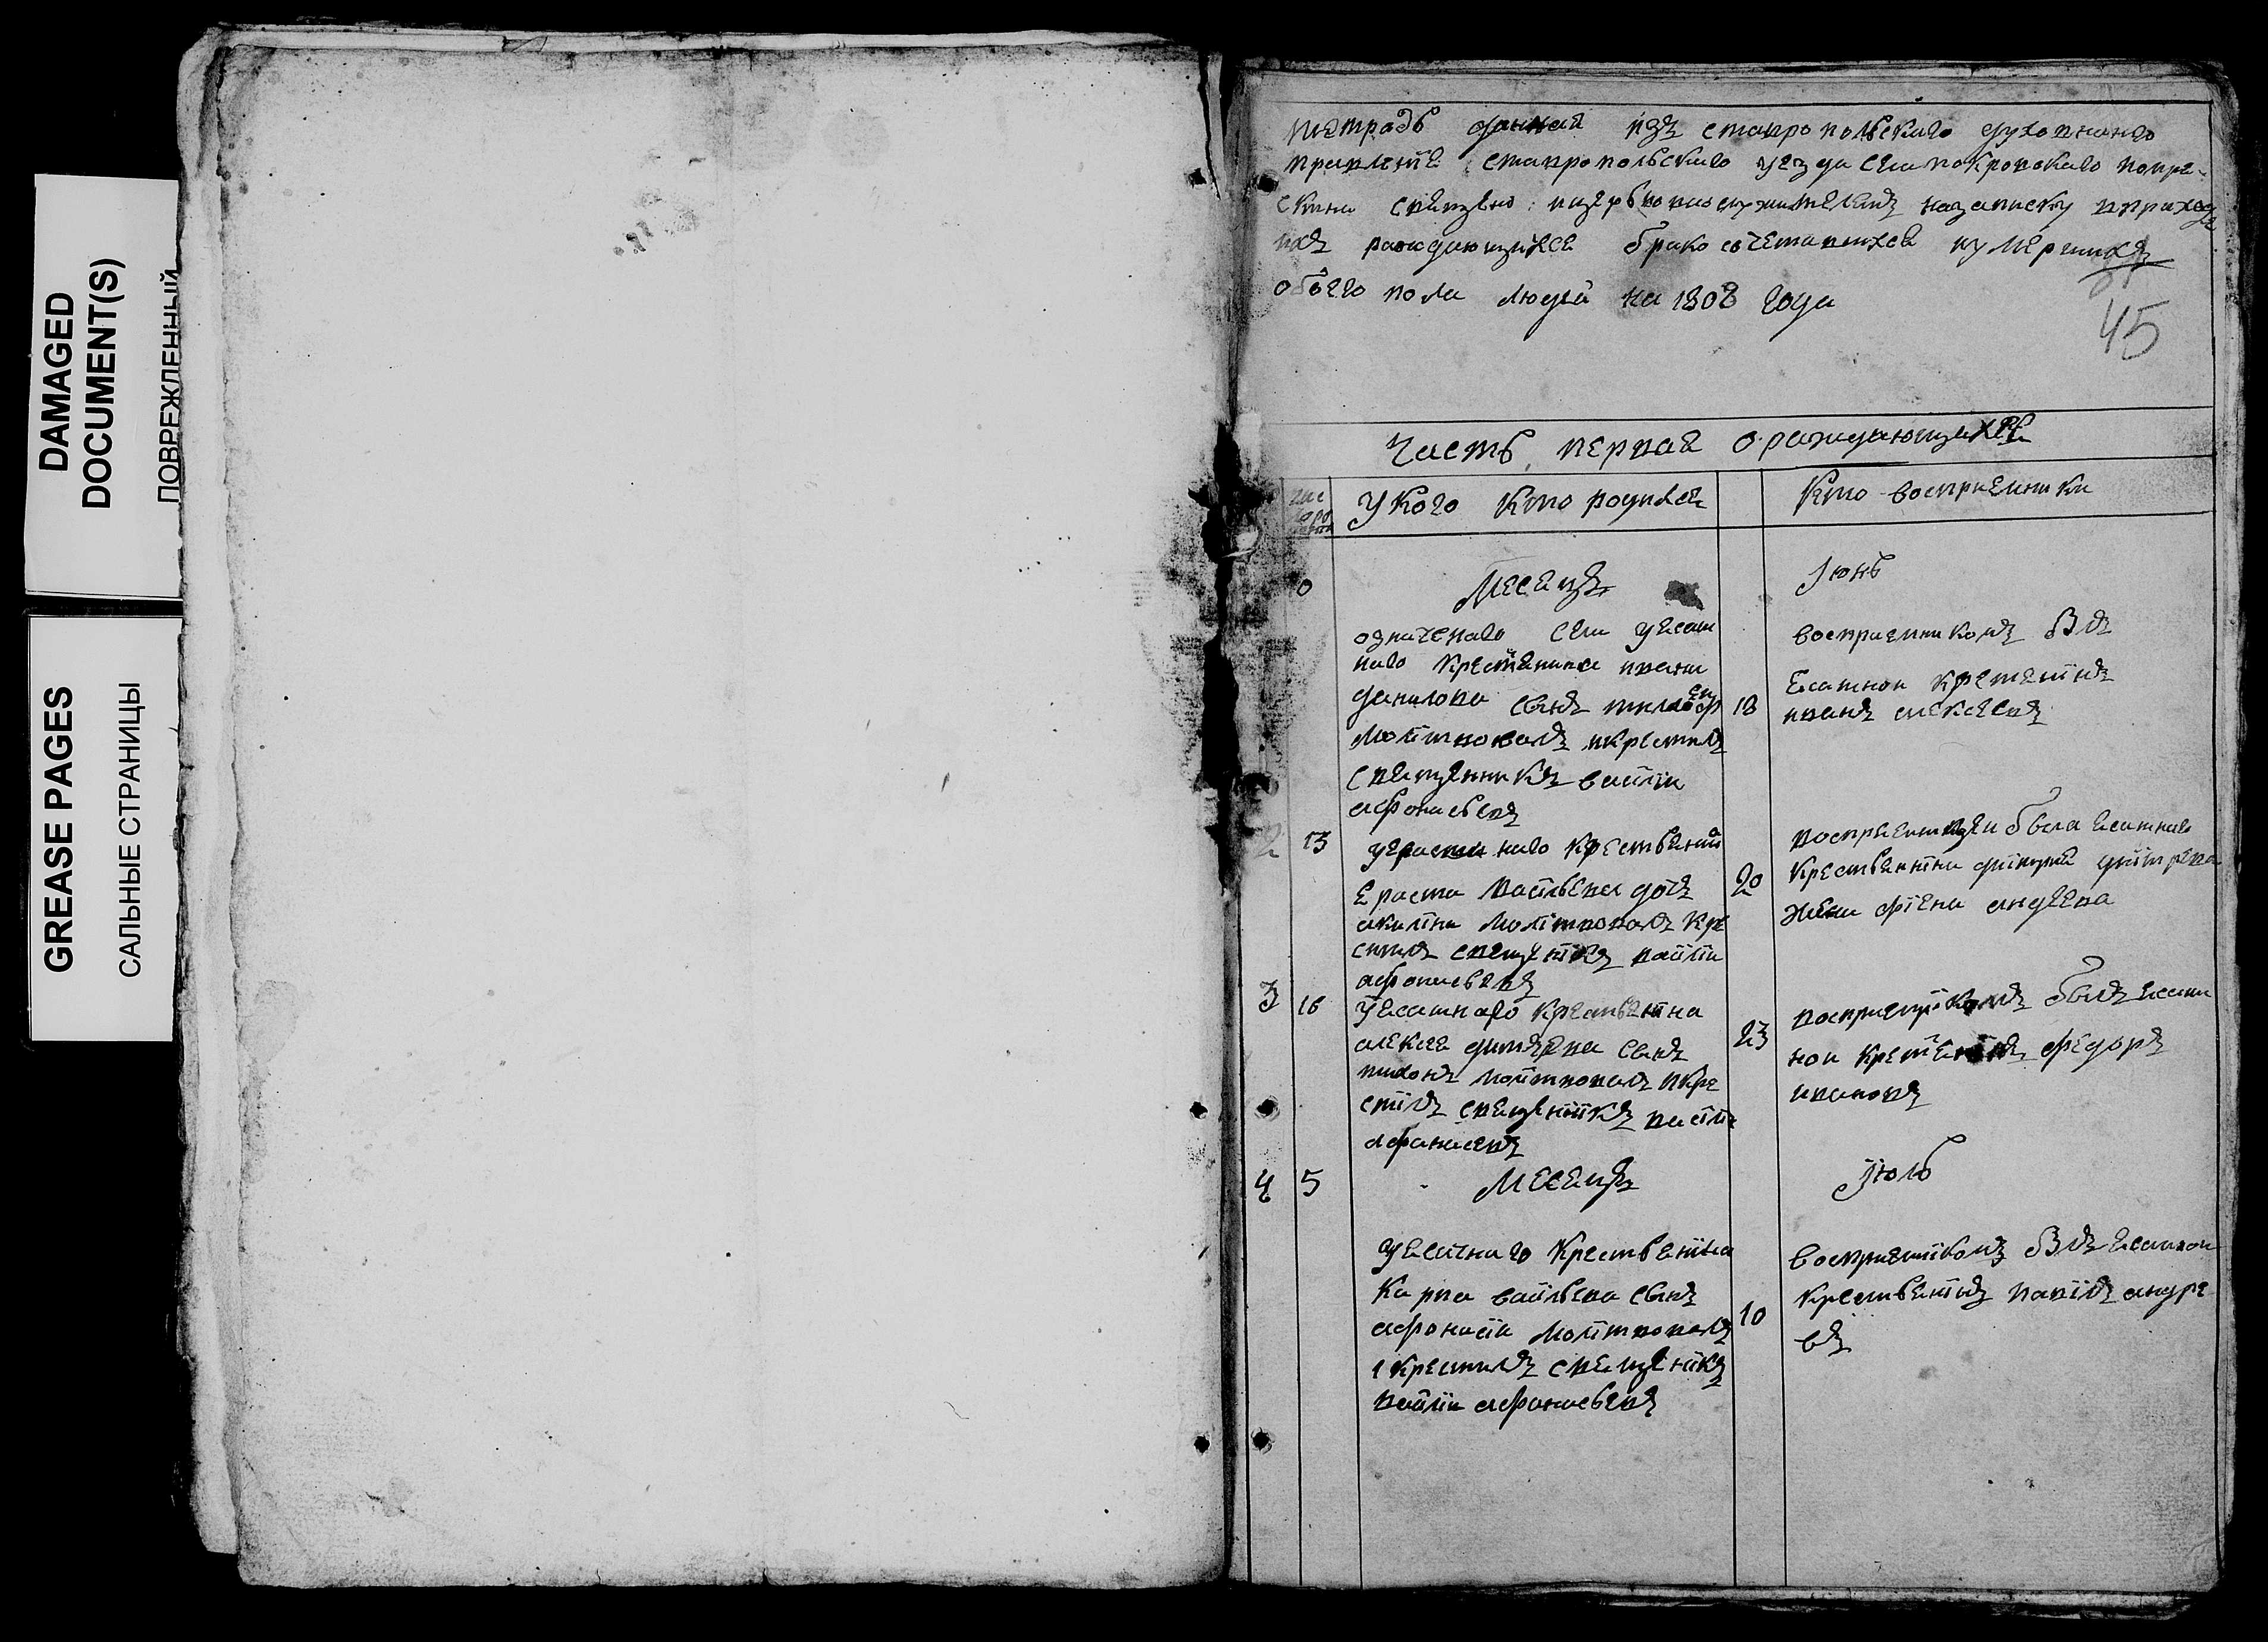 DAMAGED
DOCUMENT(S)
ПОВРЕЖДЕННЫЙ
GREASE PAGES
САЛЬНЫЕ СТРАНИЦЫ
тетрадь данная изъ ставропольскаго духовнаго
правление ставропольскаго уезда села покровскаго
священо церьковнослужителемъ на записку
раждающихсе брако сочетавшихсе
обоего пола людей на 1808 года
45
Часть первая о раждающихсе
У кого кто родилсе
Кто восприемники
Месецъ
Июнь
означенаго села у ясаш
наго крестенина ивана
данилова сынъ
молитвовалъ и крестилъ
свещенникъ васили
афонасьевъ
18
восприемникомъ былъ
ясашнои крестенинъ
иванъ алексеевъ
2 13
крестьенина
ераста васильева дочь
акилина молитвовалъ кре
стилъ свещеникъ васили
афонасьевъ
20
восприемницеи была ясашнаго
крестьенина
жена андеева
3 16
у ясашнаго крестьенина
алексея сынъ
тихонъ молитвовалъ и кре
стилъ свещенникъ васили
афанасевъ
23
восприемникомъ былъ ясаш
нои крестенинъ федоръ
ивановъ
4 5
Месецъ
Июль
у ясашнаго крестьенина
карпа васильева сынъ
афонасии молитвовалъ
и крестилъ свещеникъ
васили афонасьевъ
10
восприемникомъ былъ ясашнои
крестьенинъ андре
въ